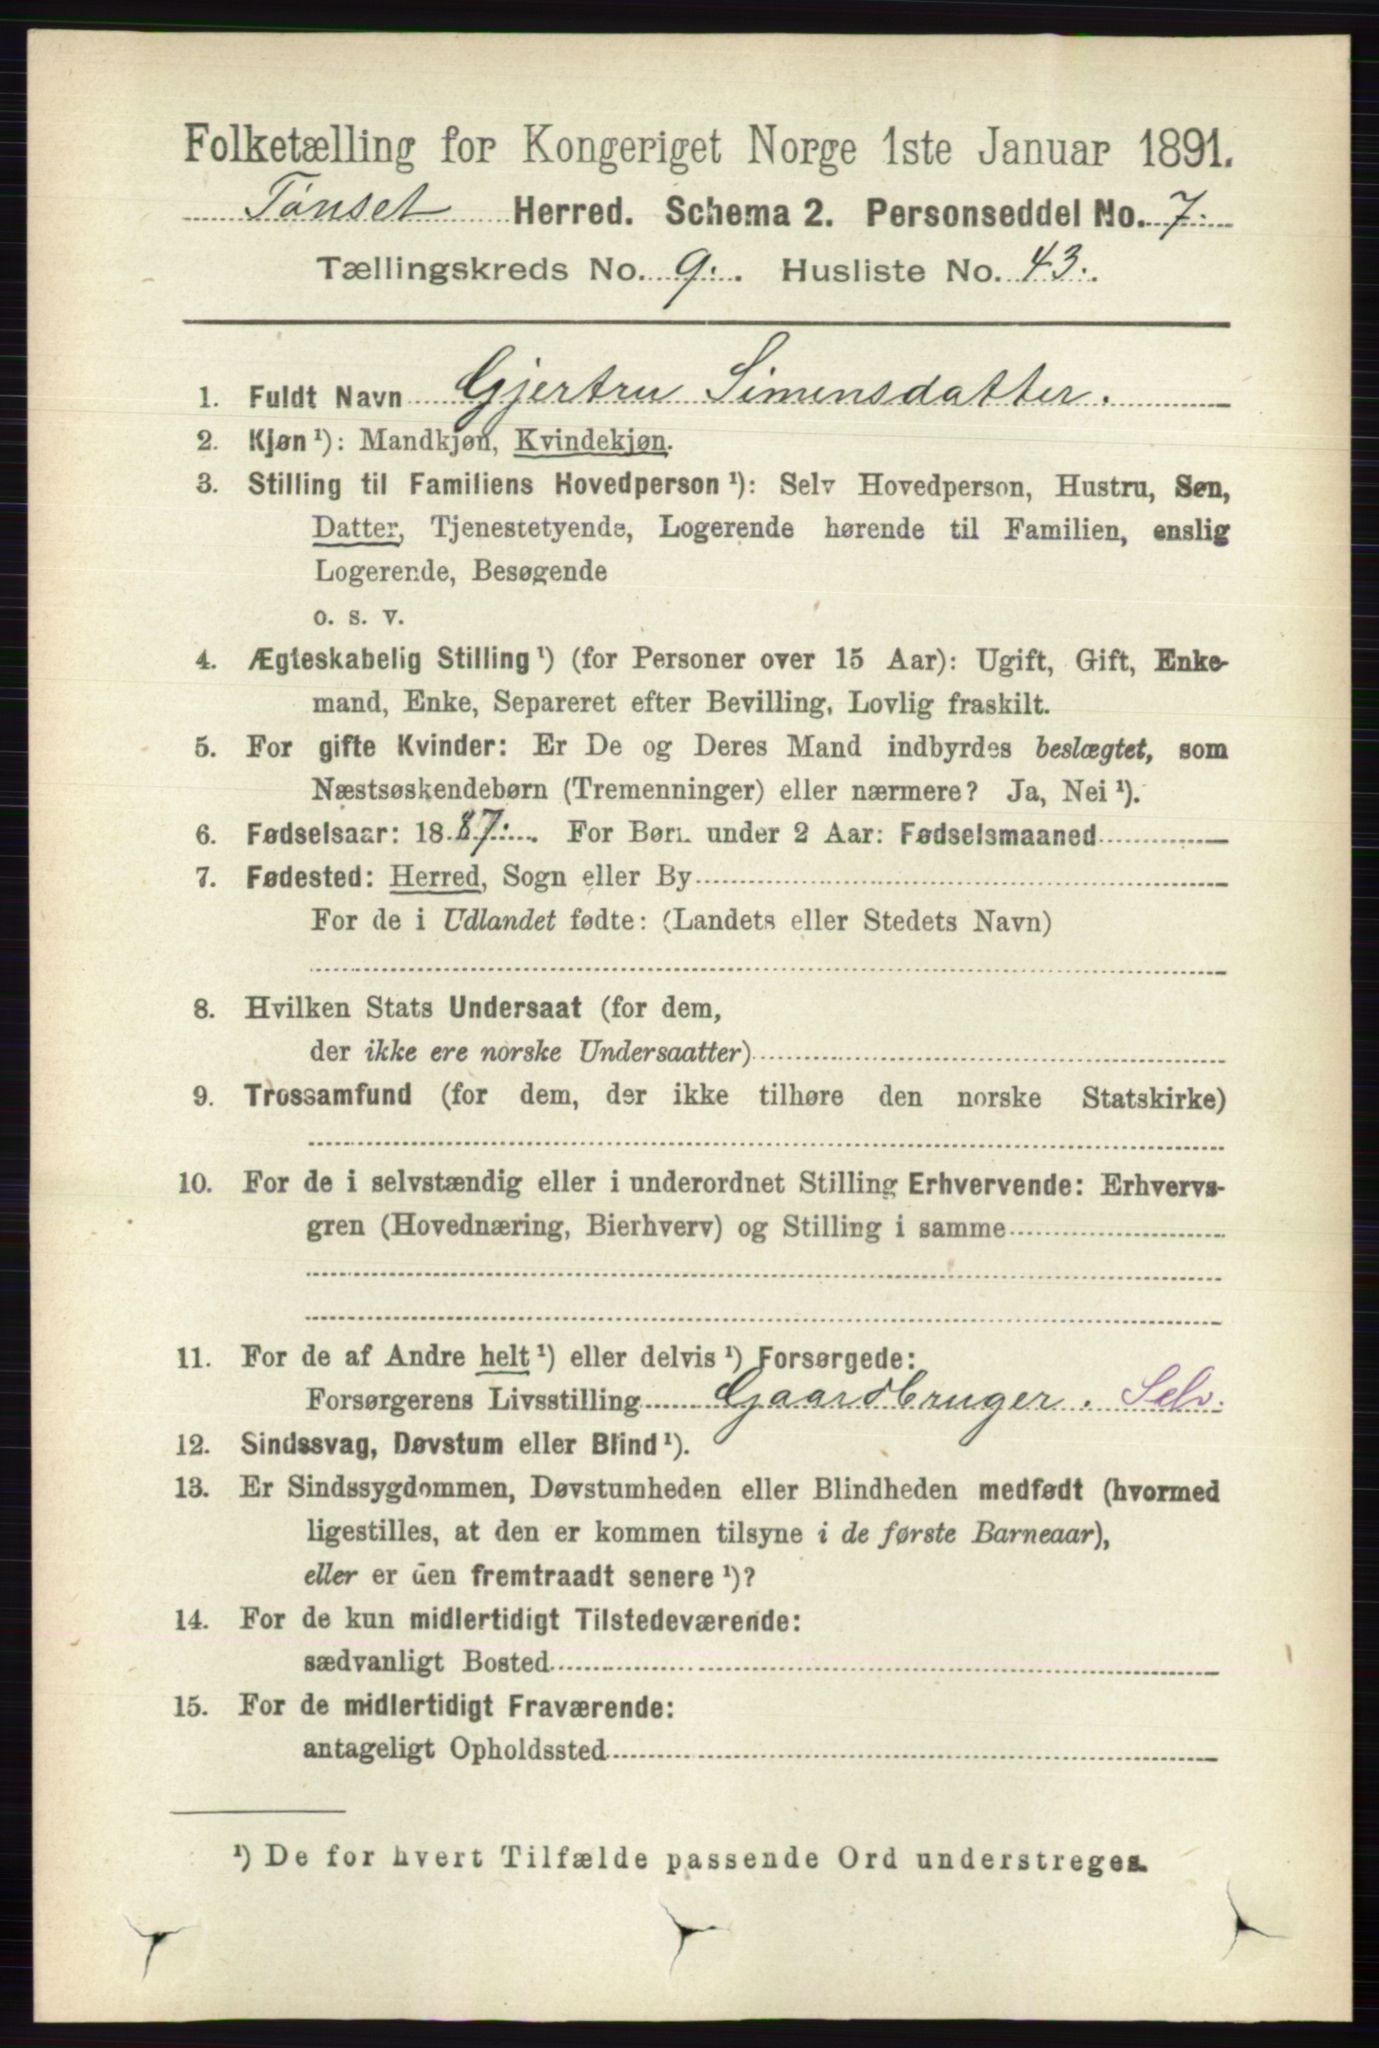 Folketælling for Kongeriget Norge 1ste Januar 1891.
Tønset Herred. Schema 2. Personseddel No. 7.
Tællingskreds No. 9. Husliste No. 43.
1. Fuldt Navn Gjertru Simensdatter.
2. Kjøn ¹): Mandkjøn, Kvindekjøn.
3. Stilling til Familiens Hovedperson ¹): Selv Hovedperson, Hustru, Søn,
Datter, Tjenestetyende, Logerende hørende til Familien, enslig
Logerende, Besøgende
o. s. v.
4. Ægteskabelig Stilling ¹) (for Personer over 15 Aar): Ugift, Gift, Enke-
mand, Enke, Separeret efter Bevilling, Lovlig fraskilt.
5. For gifte Kvinder: Er De og Deres Mand indbyrdes beslægtet, som
Næstsøskendebørn (Tremenninger) eller nærmere? Ja, Nei ¹).
6. Fødselsaar: 1887. For Børn under 2 Aar: Fødselsmaaned
7. Fødested: Herred, Sogn eller By
For de i Udlandet fødte: (Landets eller Stedets Navn)
8. Hvilken Stats Undersaat (for dem,
der ikke ere norske Undersaatter)
9. Trossamfund (for dem, der ikke tilhøre den norske Statskirke)
10. For de i selvstændig eller i underordnet Stilling Erhvervende: Erhvervs-
gren (Hovednæring, Bierhverv) og Stilling i samme
11. For de af Andre helt ¹) eller delvis ¹) Forsørgede:
Forsørgerens Livsstilling Gaardbruger. Selv.
12. Sindssvag, Døvstum eller Blind ¹).
13. Er Sindssygdommen, Døvstumheden eller Blindheden medfødt (hvormed
ligestilles, at den er kommen tilsyne i de første Barneaar),
eller er den fremtraadt senere ¹)?
14. For de kun midlertidigt Tilstedeværende:
sædvanligt Bosted
15. For de midlertidigt Fraværende:
antageligt Opholdssted
¹) De for hvert Tilfælde passende Ord understreges.